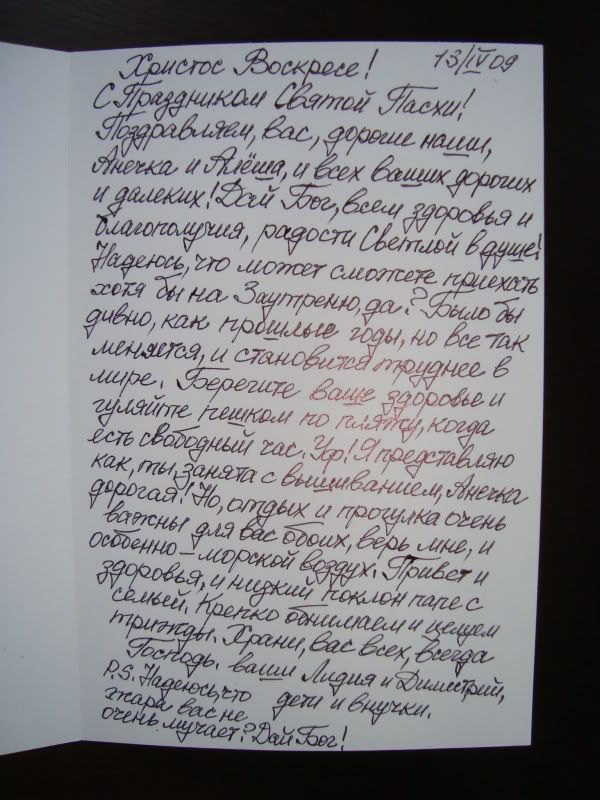 Христос Воскресе! 13/IV 09
С Праздником Святой Пасхи!
Поздравляем, вас, дорогие наши,
Анечка и Алёша, и всех ваших дорогих
и далеких! Дай Бог, всем здоровья и
благополучия, радости Светлой в душе!
Надеюсь, что может сможете приехать
хотя бы на Заутреню, да? Было бы
дивно, как прошлые годы, но все так
меняется, и становится труднее в
мире. Берегите ваше здоровье и
гуляйте пешком по пляжу, когда
есть свободный час. Уф! Я представляю
как, ты, занята с вышиванием, Анечка
дорогая! Но, отдых и прогулка очень
важны для вас обоих, верь мне, и
особенно – морской воздух. Привет и
здоровья, и низкий поклон папе с
семьей. Крепко обнимаем и целуем
трижды. Храни, вас всех, всегда
Господь. ваши Лидия и Димитрий,
дети и внучки.
P.S. Надеюсь, что
жара вас не
очень мучает? Дай Бог!